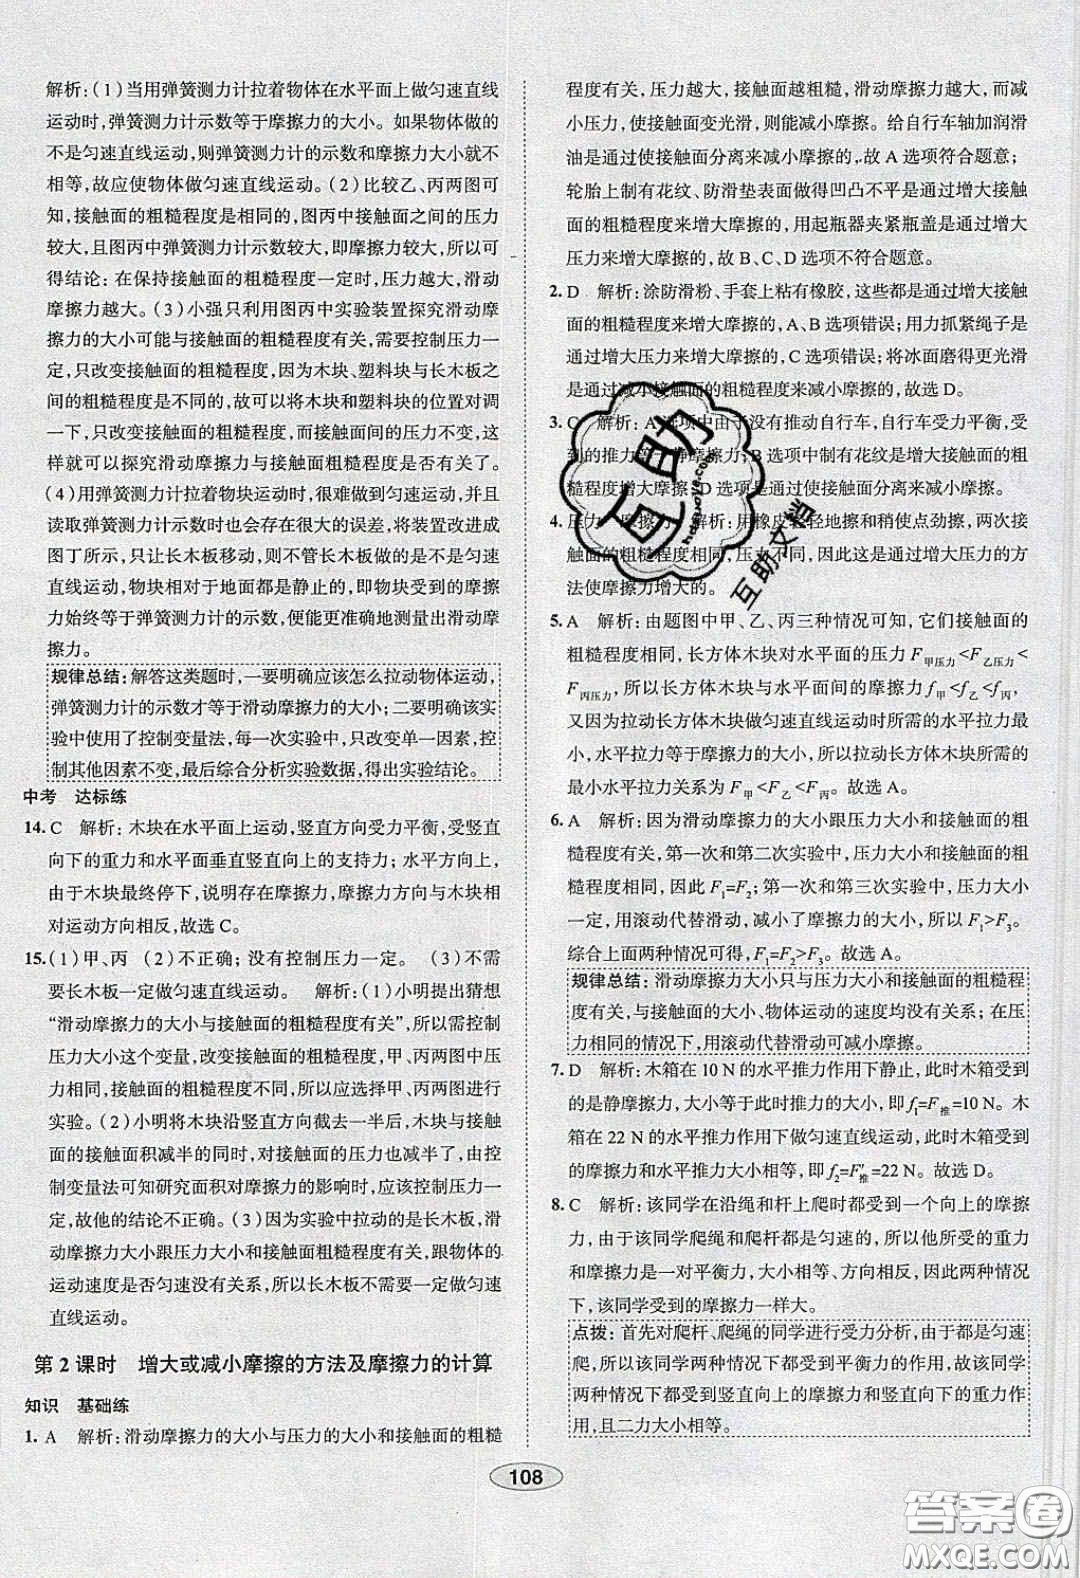 解析:(1)当用弹簧测力计拉着物体在水平面上做匀速直线
运动时,弹簧测力计示数等于摩擦力的大小。如果物体做的
不是匀速直线运动,则弹簧测力计的示数和摩擦力的大小不
相等,故应使物体做匀速直线运动。(2)比较乙、丙两图可
知,接触面的粗糙程度是相同的,图丙中接触面之间的压力
较大,且图丙中弹簧测力计示数较大,即摩擦力较大,所以可
得结论:在保持接触面的粗糙程度一定时,压力越大,滑动
摩擦力越大。(3)小强只利用图丙中实验装置探究滑动摩
擦力的大小可能与接触面的粗糙程度有关,需要控制压力一
定,只改变接触面的粗糙程度,因为木块、塑料块与长木板之间
的粗糙程度是不同的,故可以将木块和塑料块的位置对调
一下,只改变接触面的粗糙程度,而接触面间的压力不变,这
样就可以探究滑动摩擦力与接触面粗糙程度是否有关了。
(4)用弹簧测力计拉着物块运动时,很难做到匀速运动,并且
读取弹簧测力计示数时也会存在很大的误差,将装置改进成
图丁所示,只让长木板移动,则不管长木板做的是不是匀速
直线运动,物块相对于地面都是静止的,即物块受到的摩擦
力始终等于弹簧测力计的示数,便能更准确地测量出滑动
摩擦力。
规律总结:解答这类题时,一要明确应该怎么拉动物体运动,
弹簧测力计的示数才等于滑动摩擦力的大小;二要明确该实
验中使用了控制变量法,每一次实验中,只改变单一因素,控
制其他因素不变,最后综合分析实验数据,得出实验结论。
中考 达标练
14. C 解析:木块在水平面上运动,竖直方向受力平衡,受竖直
向下的重力和水平面垂直竖直向上的支持力;水平方向上,
由于木块最终停下,说明存在摩擦力,摩擦力方向与木块相
对运动方向相反,故选 C。
15. (1)甲、丙 (2)不正确;没有控制压力一定。 (3)不需
要长木板一定做匀速直线运动。 解析:(1)小明提出猜想
“滑动摩擦力的大小与接触面的粗糙程度有关”,所以需控制
压力大小这个变量,改变接触面的粗糙程度,甲、丙两图中压
力相同,接触面的粗糙程度不同,所以应选择甲、丙图进行
实验。(2)小明将木块沿竖直方向截去一半后,木块与接触
面的接触面积减半的同时,对接触面的压力也减半,由控
制变量法可知研究面积对摩擦力的影响时,应该控制压力一
定,故他的结论不正确。(3)因为实验中拉动的是长木板,滑
动摩擦力大小跟压力大小和接触面粗糙程度有关,跟物体的
运动速度是否匀速没有关系,所以长木板不一定做匀速
直线运动。
第 2 课时 增大或减小摩擦的方法及摩擦力的计算
知识 基础练
1. A 解析:滑动摩擦力的大小与压力的大小和接触面的粗糙
程度有关,压力越大,接触面越粗糙,滑动摩擦力越大,而减
小压力,使接触面变光滑,则能减小摩擦。给自行车轴加润滑
油是通过使接触面分离来减小摩擦的,故 A 选项符合题意;
轮胎上制有花纹、防滑垫表面做得凹凸不平是通过增大接触
面的粗糙程度来增大摩擦的,用起瓶器夹紧瓶盖是通过增大
压力来增大摩擦的,故 B、C、D 选项不符合题意。
2. D 解析:涂防滑粉、手套上粘有橡胶,这些都是通过增大接触
面的粗糙程度来增大摩擦的,A、B 选项错误;用力抓紧绳子是
通过增大压力来增大摩擦的,C 选项错误;将冰面磨得更光滑
是通过减小接触面的粗糙程度来减小摩擦的,故选 D。
3. C 解析:A 选项中由于没有推动自行车,自行车受力平衡,受
到的推力等于静摩擦力;B 选项中制有花纹是增大接触面的粗
糙程度增大摩擦;D 选项是通过分离接触面减小摩擦。
4. 压力 摩擦 解析:用橡皮轻轻地擦和稍使点劲擦,两次接
触面的粗糙程度相同,压力不同,因此这是通过增大压力的方
法使摩擦力增大的。
5. A 解析:由题图中甲、乙、丙三种情况可知,它们接触面的
粗糙程度相同,长方体木块对水平面的压力 F甲压力<F乙压力<
F丙压力,所以长方体木块与水平面间的摩擦力 f甲<f乙<f丙,
又因为拉动长方体木块做匀速直线运动时所需的水平拉力最
小,水平拉力等于摩擦力的大小,所以拉动长方体木块所需的
最小水平拉力关系为 F甲<F乙<F丙。故选 A。
6. A 解析:因为滑动摩擦力的大小跟压力大小和接触面的粗
糙程度有关,第一次和第二次实验中,压力大小和接触面的
粗糙程度相同,因此 F₁=F₂;第一次和第三次实验中,压力大小
一定,用滚动代替滑动,减小了摩擦力的大小,所以 F₁>F₃。
综合上面两种情况可得,F₁=F₂>F₃。故选 A。
规律总结:滑动摩擦力大小只与压力大小和接触面的粗糙程
度有关,与接触面的大小、物体运动的速度均没有关系;在压
力相同的情况下,用滚动代替滑动可减小摩擦。
7. D 解析:木箱在 10 N 的水平推力作用下静止,此时木箱受到
的是静摩擦力,大小等于此时推力的大小,即 f₁=F推=10 N。木
箱在 22 N 的水平推力作用下做匀速直线运动,此时木箱受到
的摩擦力和水平推力大小相等,即 f₂=F′推=22 N。故选 D。
8. C 解析:该同学在沿绳和杆上爬时都受到一个向上的摩擦
力,由于该同学爬绳和爬杆都是匀速的,所以他所受的重力
和摩擦力是一对平衡力,大小相等、方向相反,因此两种情况
下,该同学受到的摩擦力一样大。
点拨:首先对爬杆、爬绳的同学进行受力分析,由于都是匀速
爬,所以该同学受到平衡力的作用,由于是同一个同学,所以
两种情况下都受到竖直向上的摩擦力和竖直向下的重力作
用,且二力大小相等。
108
互助
hdzuoye.com
互助文档
答案圈
MXQE.COM